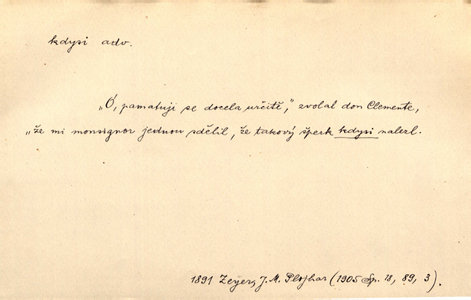 kdysi adv.
„Ó, pamatuji se docela určitě,“ zvolal don Clemente,
„že mi monsignor jednou sdělil, že takový šperk kdysi nalezl.
1891 Zeyer, J. M. Plojhar (1905 Sp. 18, 89, 3).